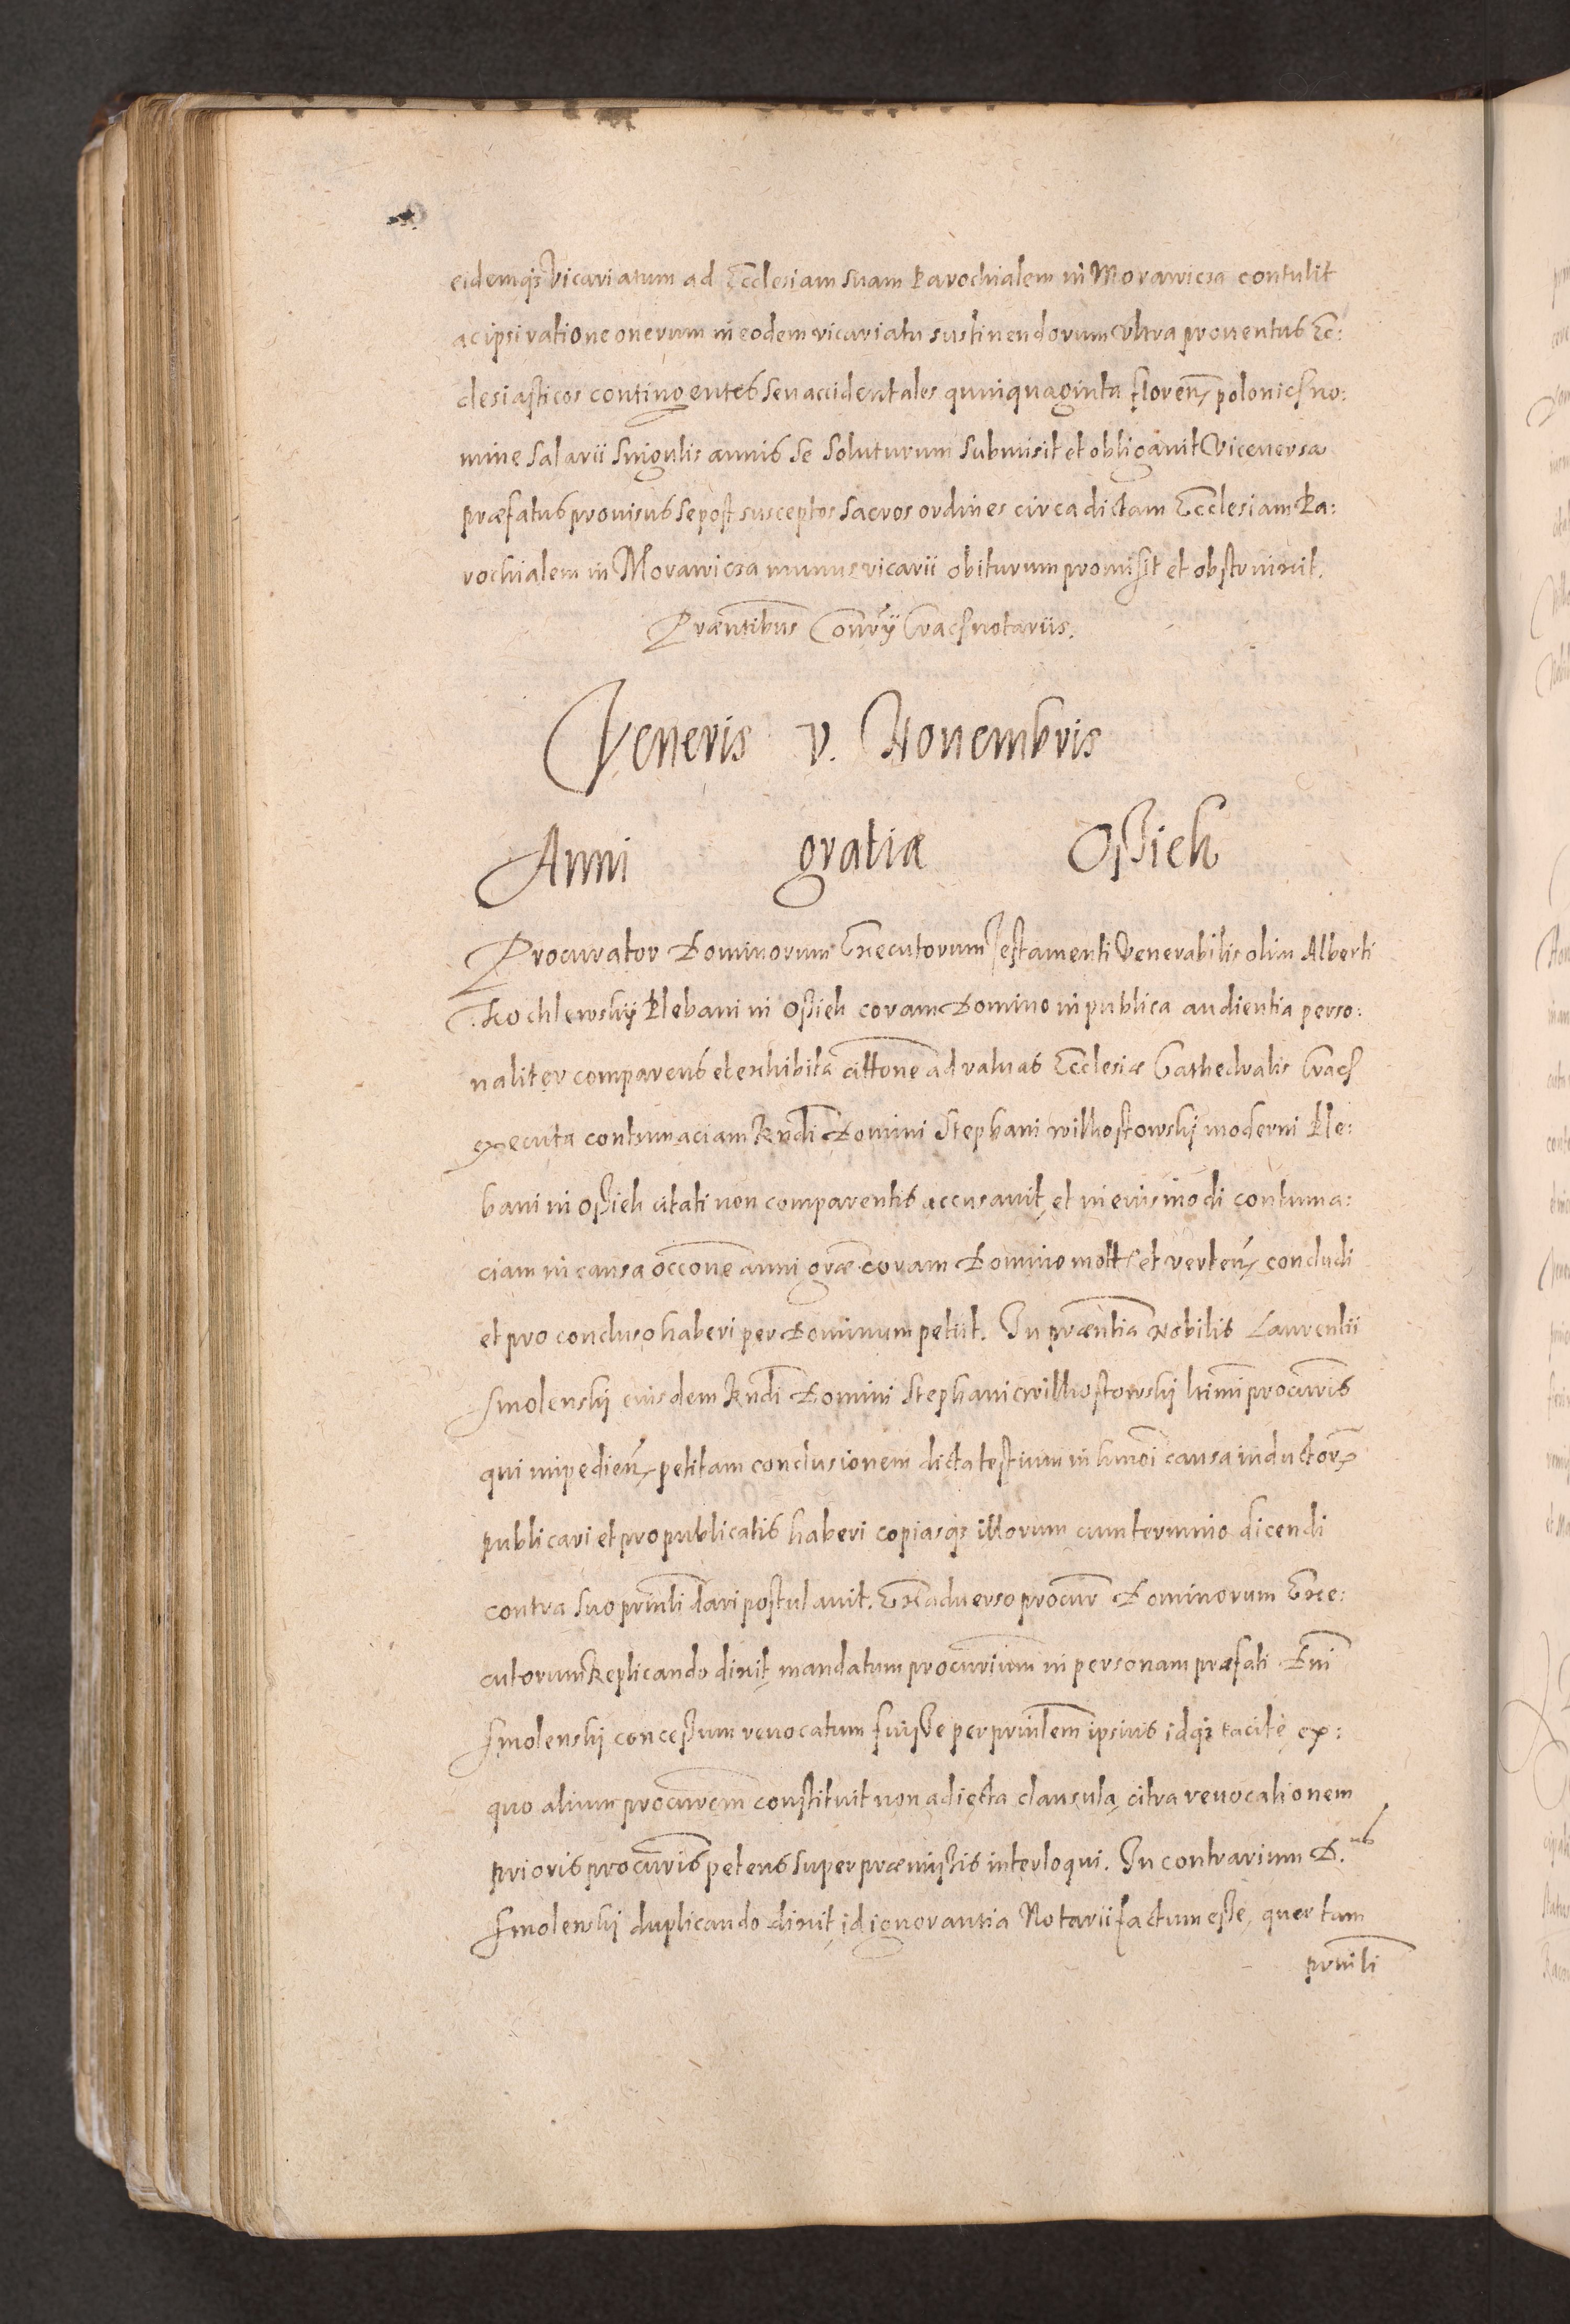 eidemq3 Vicariatum ad Ecclesiam suam Parochialem in Morawicza contulit
ac ipsi ratione onerum in eodem vicariatu sustinendorum Vltra prouentus Ec:
clesiasticos contingentes seu accidentales quinquaginta floren̄ polonic no:
mine salarii singulis annis se soluturum submisit et obligauit Viceuersa
præfatus prouisus se post susceptos sacros ordines circa dictam Ecclesiam Pa:
rochialem in Morawicza munus vicarii obiturum promisit et obstruixit.
Præntibus Conrÿ Crac notariis.
Veneris v. Nouembris
Anni gratiæ Ossiek
Procurator Dominorum Executorum Testamenti Venerabilis olim Alberti
Kochlewskÿ Plebani in Ossiek coram Domino in publica audientia perso:
naliter comparens et exhibita cittone ad valuas Ecclesiæ Cathedralis Crac
executa contumaciam Rndi Domini Stephani wilkostowskj moderni Ple:
bani in Ossiek citati non comparentis accusauit, et in eiusmodi contuma:
ciam in causa occone anni græ coram Domino mott et verten̄ concludi
et pro concluso haberi per Dominum petiit. In præntia Nobilis Laurentii
Smolenskj eiusdem Rndi Domini Stephani wilkostowskj ltimi procuris
qui impedien̄ petitam conclusionem dicta testium in hmoi causa inductor
publicari et pro publicatis haberi copiasq3 illorum cum termino dicendi
contra suo prinli dari postulauit. Ex aduerso procur Dominorum Exe:
cutorum Replicando dixit, mandatum procurium in personam præfati Dni
Smolenskj concessum reuocatum fuisse per prinlem ipsius idq3 tacitè ex:
quo alium procurem constituit non adiecta clausula, citra reuocationem
prioris procuris petens super præmissis interloqui. In contrarium D.us
Smolenskj duplicando dixit, id ignorantia Notarii factum esse, quer tam
prinli